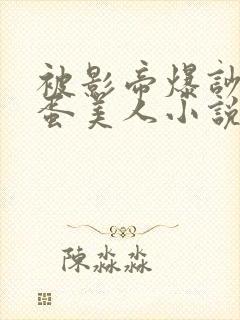 被影帝爆訬
蛋美人小說
陳淼淼